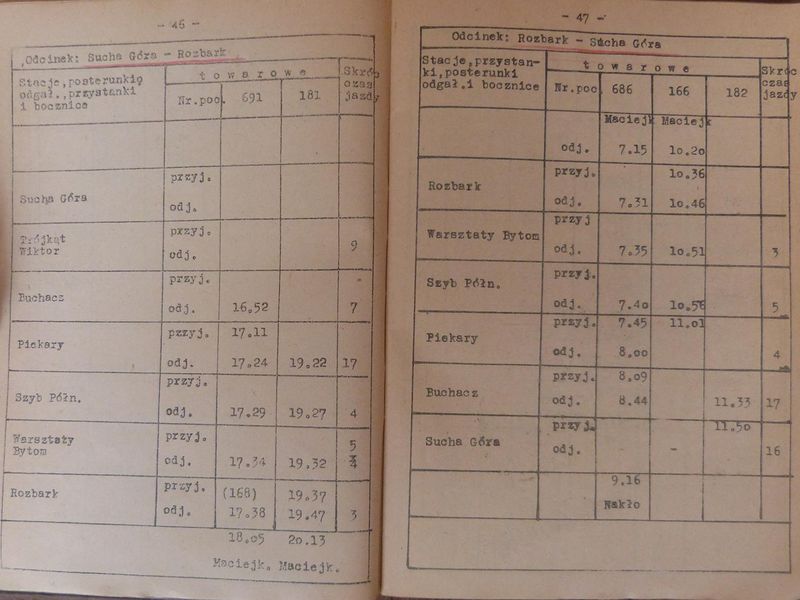 - 46 -
Odcinek: Sucha Góra - Rozbark
Stacje, posterunkię odgał., przystanki i bocznice
towarowe
Skróc czas jazdy
Nr.poc. 691 181
Sucha Góra przyj.
odj.
Trójkąt Wiktor przyj.
odj. 9
Buchacz przyj.
odj. 16.52 7
Piekary pzzyj. 17.11
odj. 17.24 19.22 17
Szyb Półn. przyj.
odj. 17.29 19.27 4
Warsztaty Bytom przyj. 5
odj. 17.34 19.32
Rozbark przyj. (168) 19.37
odj. 17.38 19.47 3
18.05 20.13
Maciejk. Maciejk.
- 47 -
Odcinek: Rozbark - Sucha Góra
Stacje, przystanki, posterunki odgał. i bocznice
towarowe
Skróc czas jazdy
Nr.poc. 686 166 182
Maciejk Maciejk
odj. 7.15 10.20
Rozbark przyj. 10.36
odj. 7.31 10.46
Warsztaty Bytom przyj
odj. 7.35 10.51 3
Szyb Półn. przyj.
odj. 7.40 10.56 5
Piekary przyj. 7.45 11.01
odj. 8.00 4
Buchacz przyj. 8.09
odj. 8.44 11.33 17
Sucha Góra przyj. 11.50
odj. - 16
9.16
Nakło